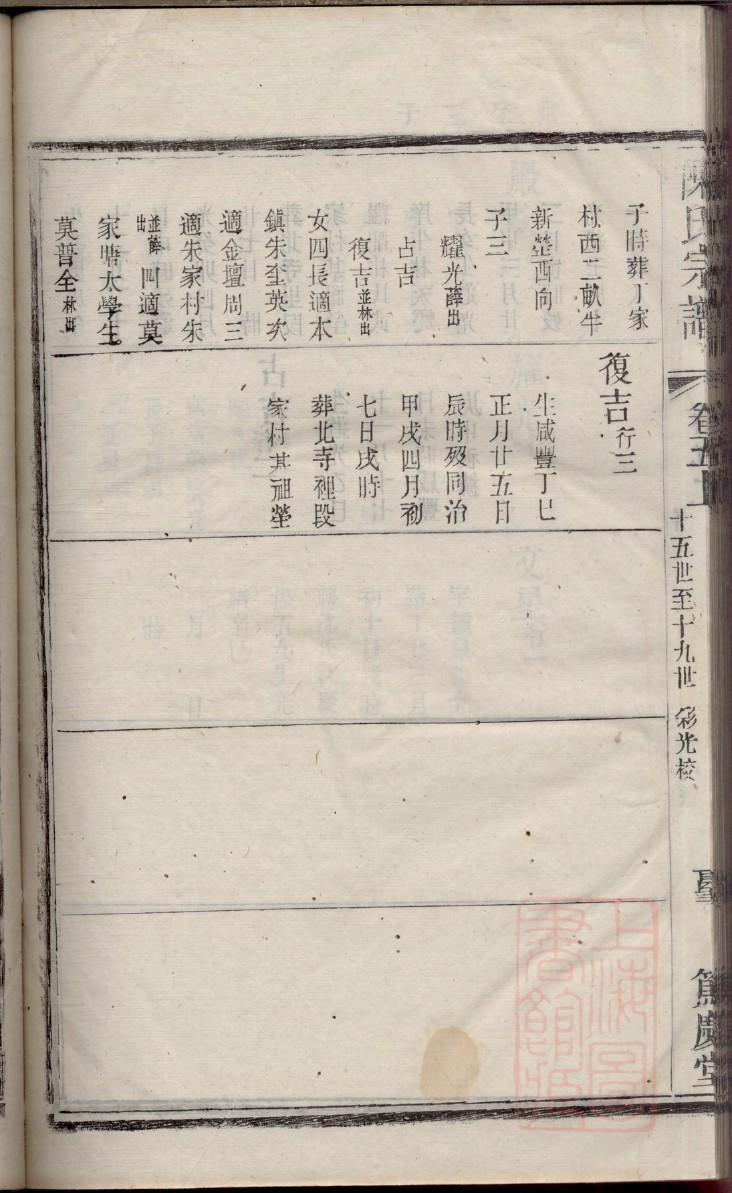 陳氏宗譜
卷五上
十五世至十九世
彩光校
篤慶堂
子時葬丁家
村西二畝半
新塋西向
子三
耀光薛出
占吉
復吉並林出
女四長適本
鎮朱奎英次
適金壇周三
適朱家村朱
並薛出四適莫
家塘太學生
莫普全林出
復吉行三
生咸豐丁巳
正月廿五日
辰時歿同治
甲戌四月初
七日戌時
葬北寺裡段
家村其祖塋
上海圖書館藏